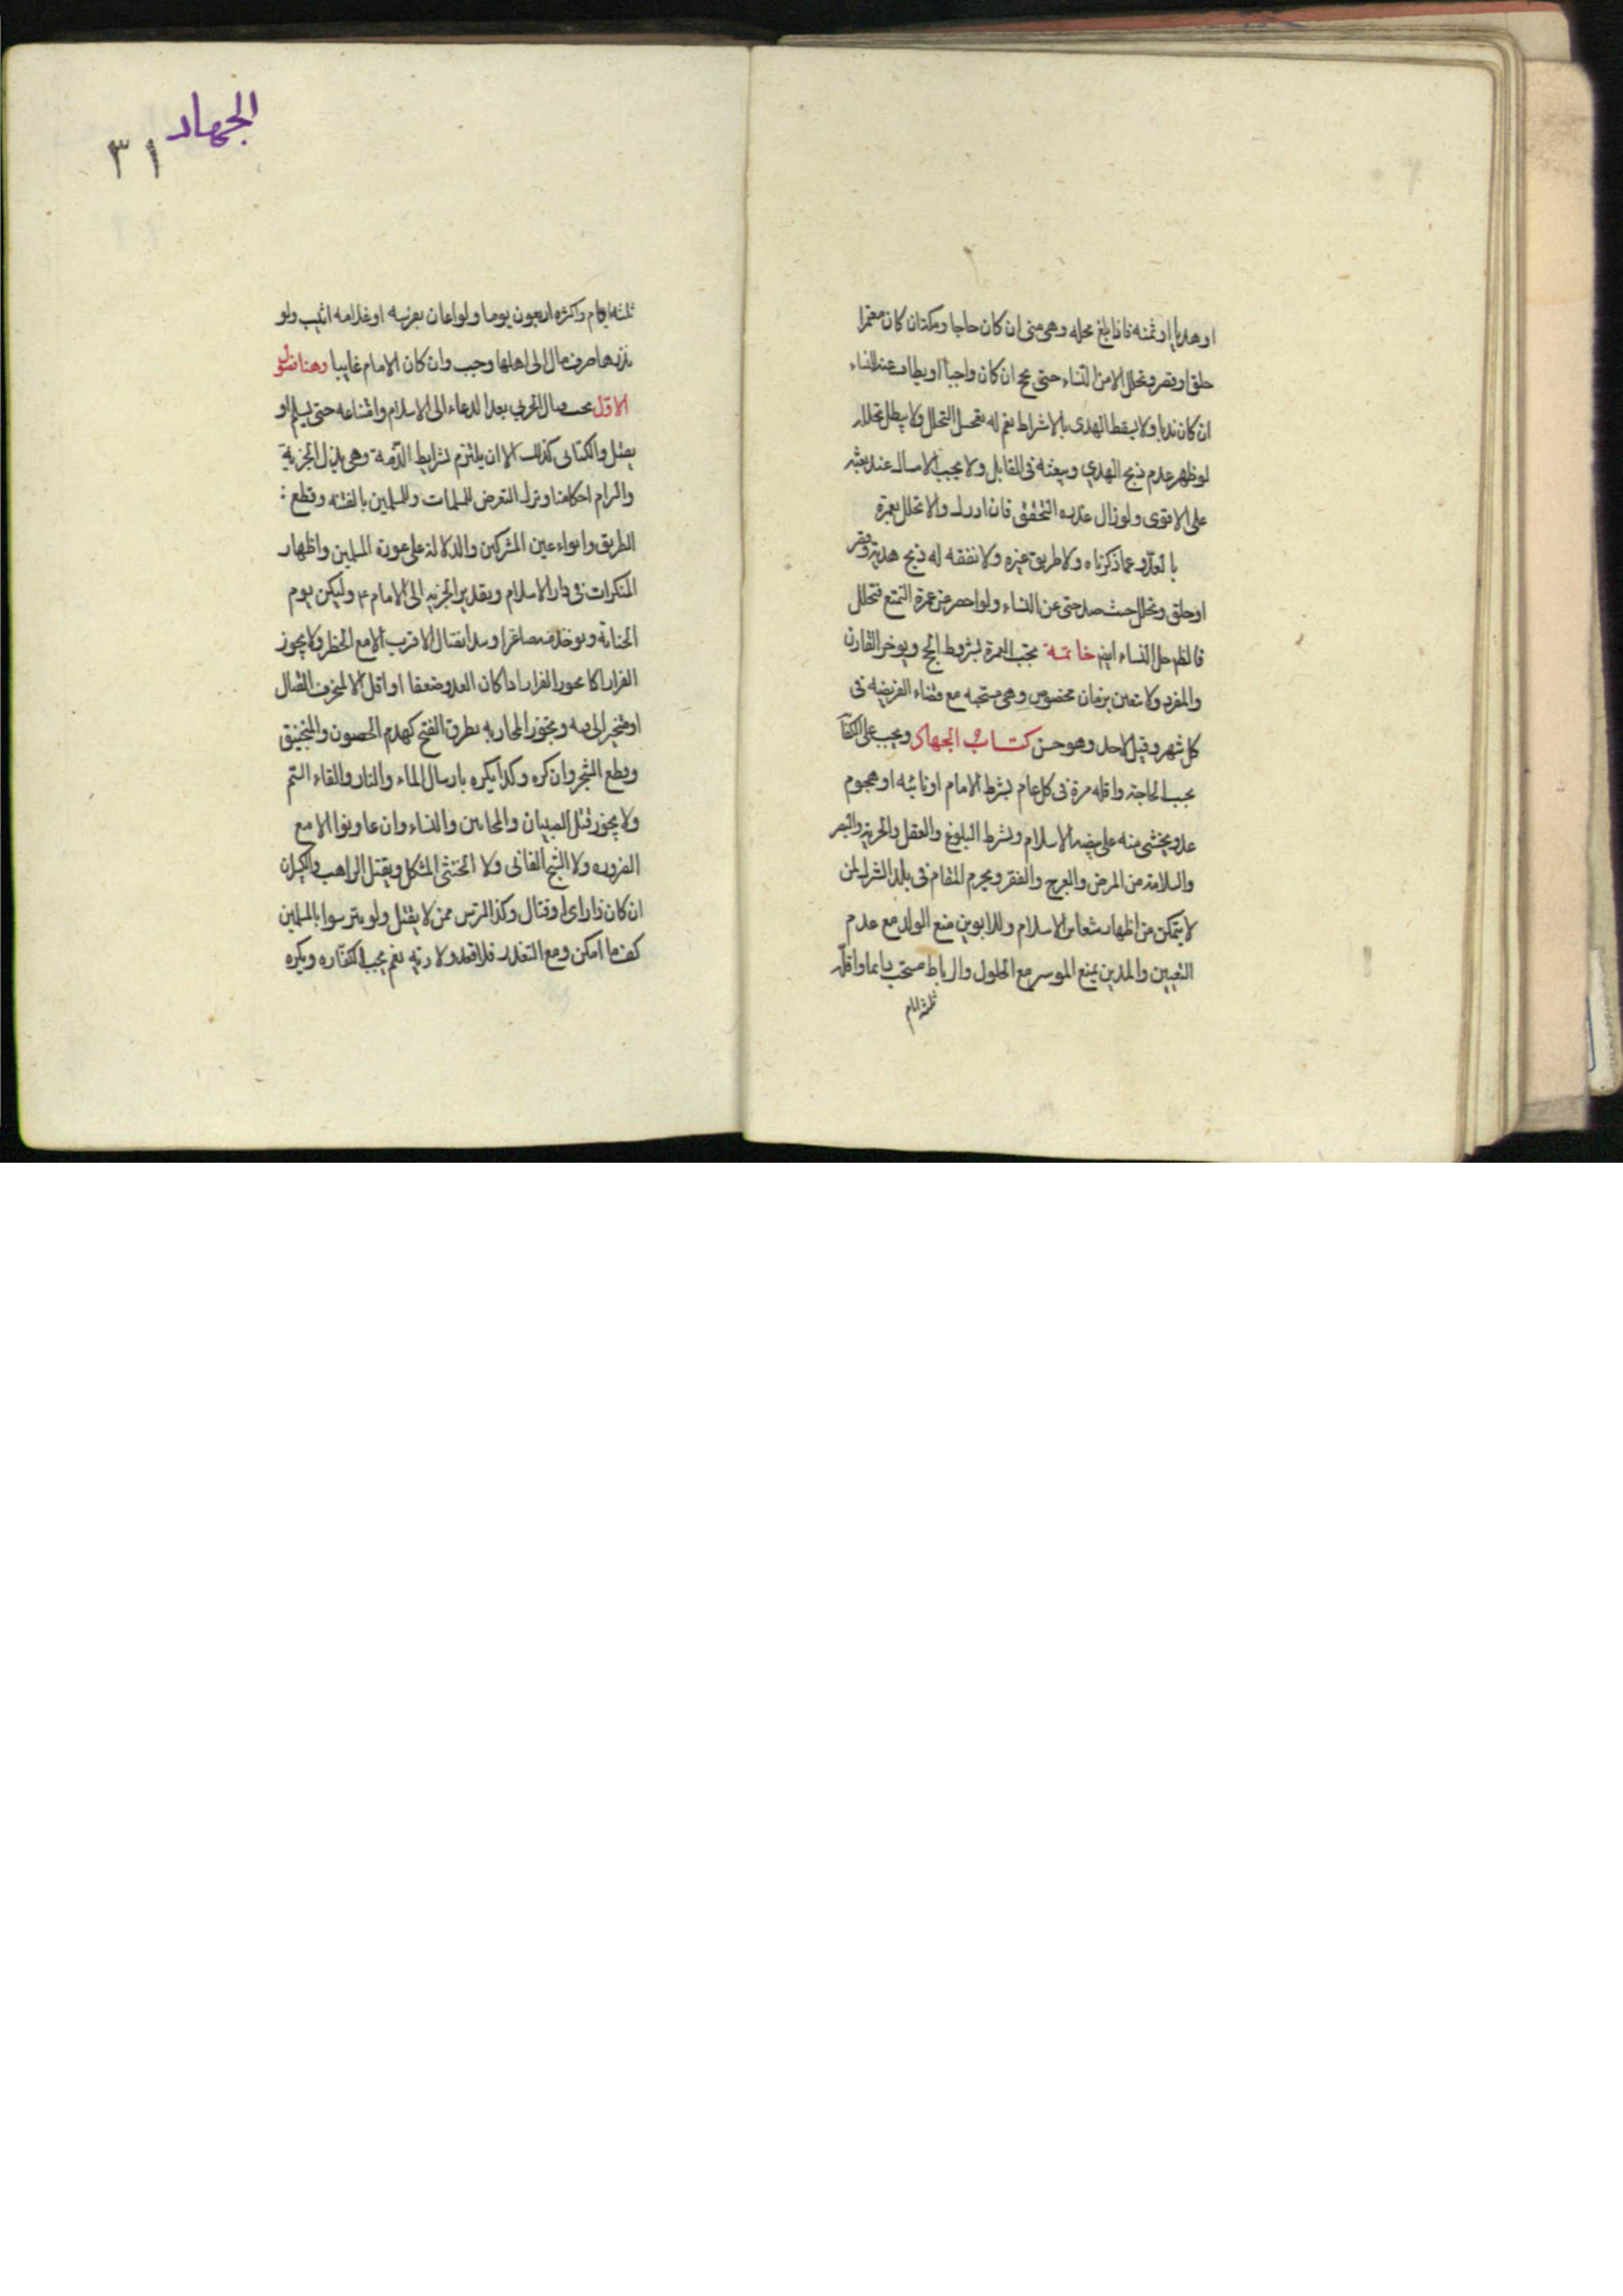 او هديا او ثمنه فاذا بلغ محله وهى منى ان كان حاجا ومكة ان كان معتمرا
حلق او قصر وتحلل الا من النساء حتى يحج ان كان واجبا او يطاف عنه للنساء
ان كان ندبا ولا يسقط الهدى بالاشتراط نعم له تعجيل التحلل ولا يبطل تحلله
لو ظهر عدم ذبح الهدي ويبعثه فى القابل ولا يجب الامساك عند بعثه
على الاقوى ولو زال عذره التحقق فان ادرك والا تحلل بعمرة
بالعدو عما ذكرناه ولا طريق غيره ولا نفقه له ذبح هديه وقصر
او حلق وتحلل حيث صد حتى عن النساء ولو احصر عن عمرة التمتع فتحلل
فالظهر حل النساء ايضا خاتمة تجب العمرة بشروط الحج ويوخر القارن
والمفرد ولا تتعين بزمان مخصوص وهى مستحبه مع قضاء الفريضه فى
كل شهر وقيل لاحد وهو حسن كتاب الجهاد ويجب على الكفاية
بحسب الحاجة واقله مرة فى كل عام بشرط الامام او نائبه او هجوم
عدو يخشى منه على بيضه الاسلام ويشرط البلوغ والعقل والحرية والبصر
والسلامة من المرض والعرج والفقر ويحرم المقام فى بلد الشرك لمن
لا يتمكن من اظهار شعاير الاسلام وللابوين منع الولد مع عدم
التعيين والمدين يمنع الموسر مع الحلول والرباط مستحب دايما واقله
ثلثه ايام
الجهاد
٣١
ثلثه ايام واكثره اربعون يوما ولو اعان بفرسه او غلامه اثيب ولو
نذرها او صرف مال الى اهلها وجب وان كان الامام غايبا وهنا فصول
الاول يجب قتال الحربي بعد الدعاء الى الاسلام وامتناعه حتى يسلم او
يقتل والكتابى كذلك الا ان يلتزم بشرايط الذمة وهى بذل الجزية
والتزام احكامنا وترك التعرض للمسلمات وللمسلمين بالفتنه وقطع :
الطريق وايواء عين المشركين والدلالة على عورة المسلمين واظهار
المنكرات فى دار الاسلام وتقدير الجزيه الى الامام ع وليكن يوم
الجناية ويوخذ منه صاغرا ويبدا بقتال الاقرب الا مع الخطر ولا يجوز
الفرار اذا كان العدو ضعفا او اقل الا لمتحرف لقتال
او متحيز الى فئه ويجوز المحاربه بطرق الفتح كهدم الحصون والمنجنيق
وقطع الشجر وان كره وكذا يكره بارسال الماء والنار والقاء السم
ولا يجوز قتل الصبيان والمجانين والنساء وان عاونوا الا مع
الضروره ولا الشيخ الفانى ولا الخنثى المشكل ويقتل الراهب والكبير
ان كان ذا راى او قتال وكذا الترس ممن لا يقتل ولو تترسوا بالمسلمين
كف ما امكن ومع التعذر فلا قود ولا ديه نعم يجب الكفاره ويكره